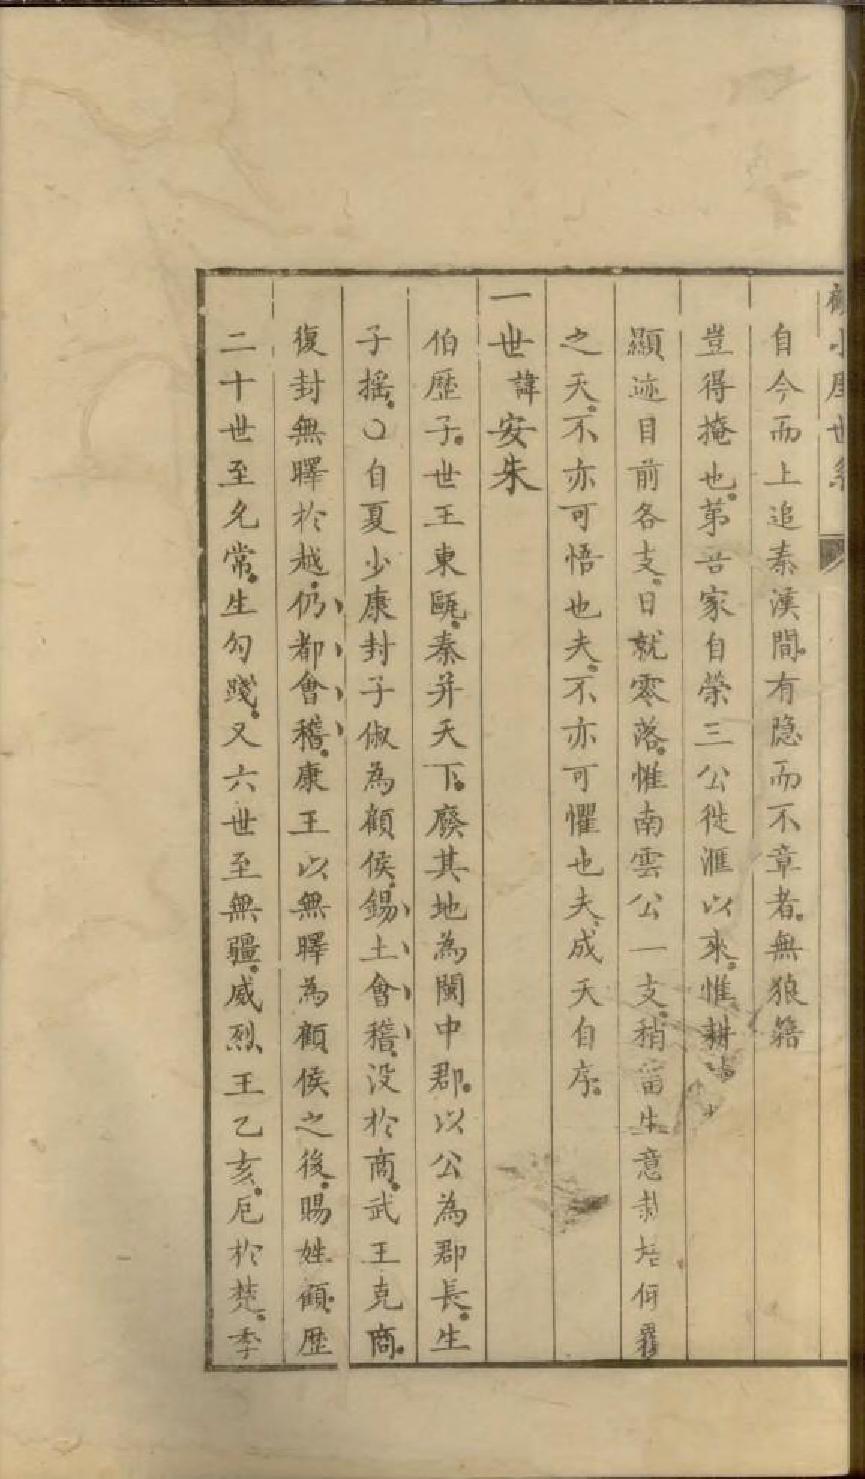 小 世系
自今而上追秦漢間。有隐而不章者。無狼籍
豈得掩也。苐吾家自榮三公徙滙以來。惟耕
顯迹目前各支。日就零落。惟南雲公一支。稍畱生意栽培何
之天。不亦可悟也夫。不亦可懼也夫。成天自序。
一世諱安朱
伯歴子。世王東甌。秦并天下。廢其地為閩中郡。以公為郡長。生
子摇。〇自夏少康封子俶為顧侯。錫土會稽。没於商。武王克商。
復封無曎於越。仍都會稽。康王以無曎為顧侯之後。賜姓顧。歴
二十世至允常。生勾踐。又六世至無疆。威烈王乙亥。卮於楚。季